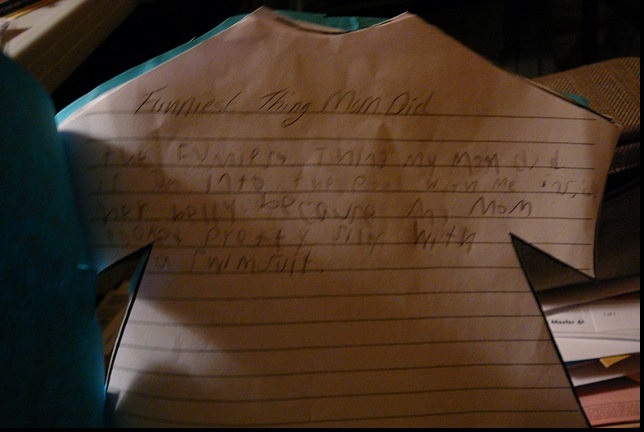 Funniest Thing Mom Did
the Funniest thing my mom did
is go into the pool with me
her belly because my Mom
looked pretty silly with
a swimsuit.
Master